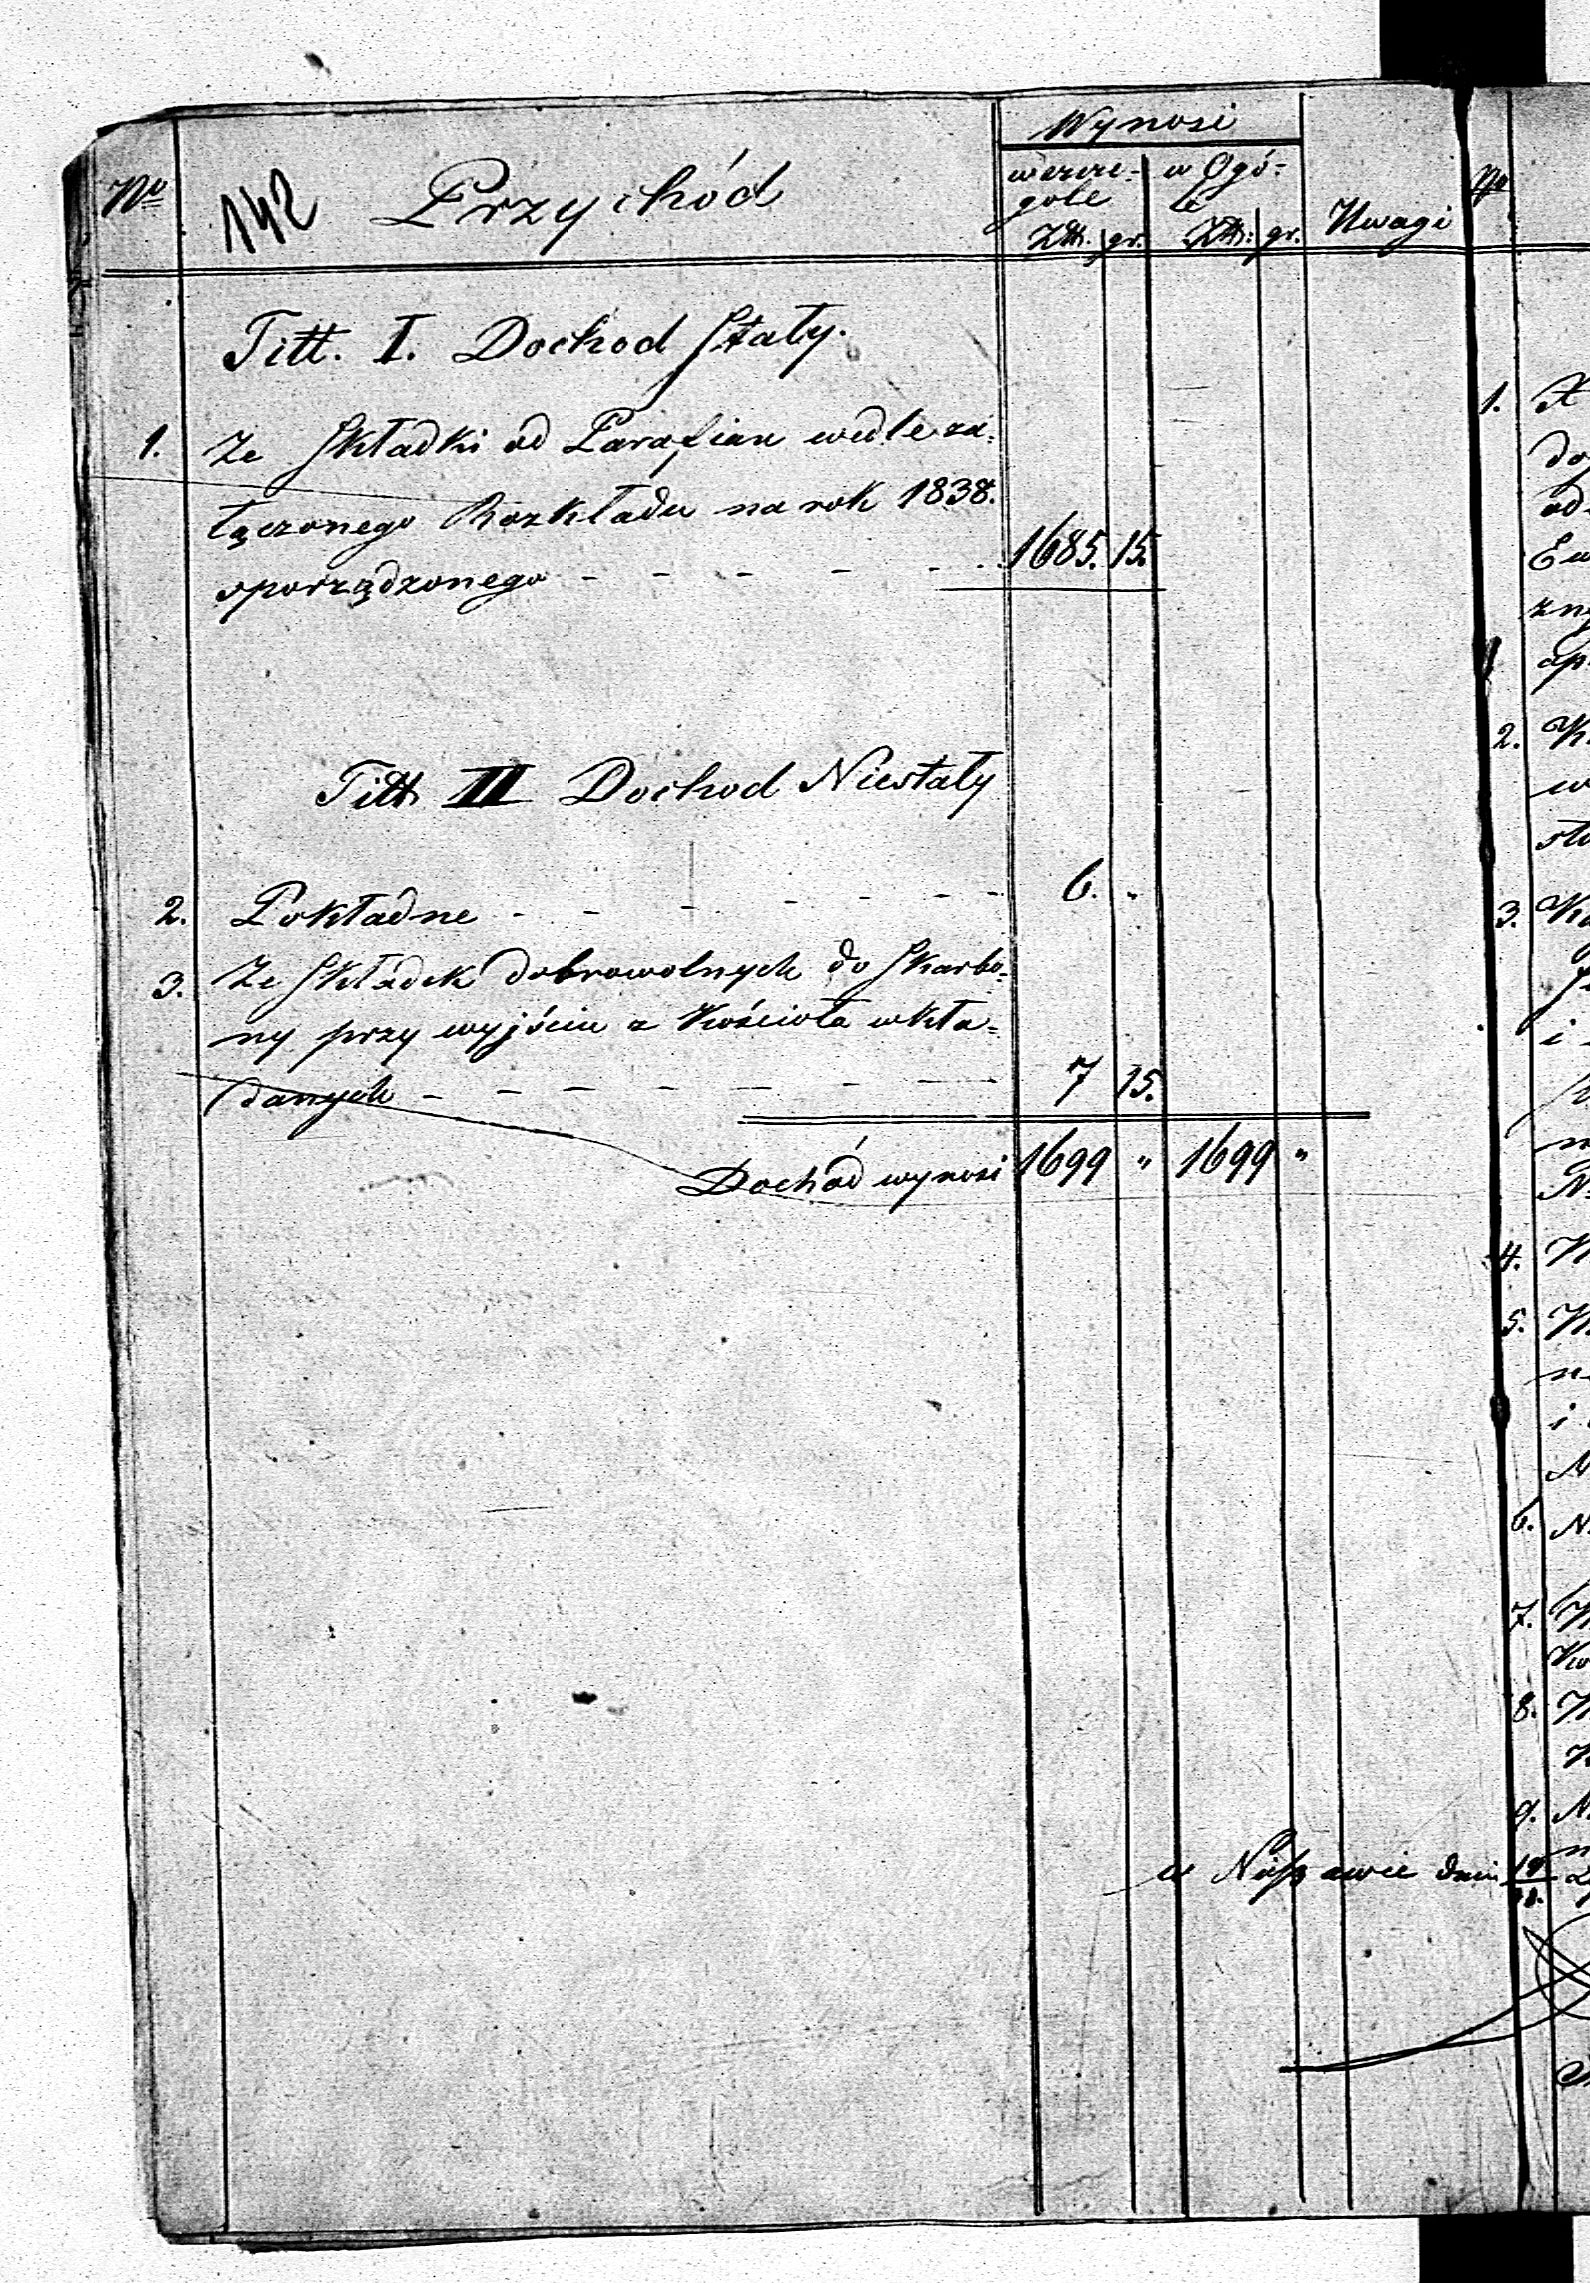 Wynosi
Nro 142 Przychód wszcze- w Ogó- Uwagi No
gole le
Złt. gr. Złt. gr.
Titt. I. Dochod Stały.
1. Ze Składki od Parafian wedle za-
łączonego Rozkładu na rok 1838.
sporządzonego - - - - - - 1685. 15.
Titt II Dochod Niestały
2. Pokładne - - - - - - 6. "
3. Ze Składek dobrowolnych do Skarbo-
ny przy wyjściu z Kościoła wkła-
danych - - - - - - - 7 15.
Dochód wynosi 1699 " 1699 "
w Nieszawie dnia
1.
2.
3.
4.
5.
6.
7.
8.
9.